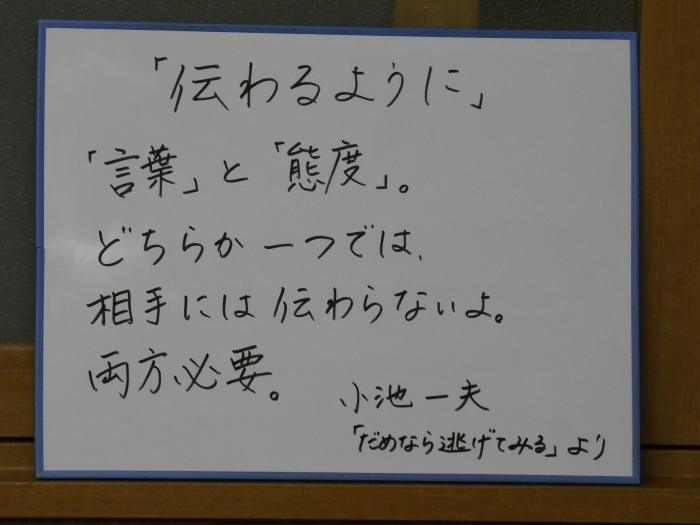 「伝わるように」
「言葉」と「態度」。
どちらか一つでは、
相手には伝わらないよ。
両方必要。
小池一夫
「だめなら逃げてみる」より